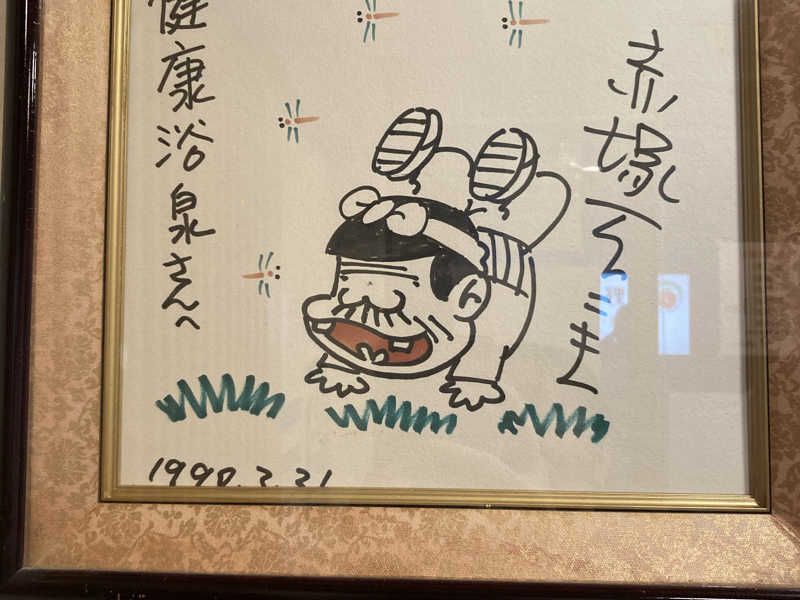 赤塚不二夫
健康浴泉さんへ
1990.2.21